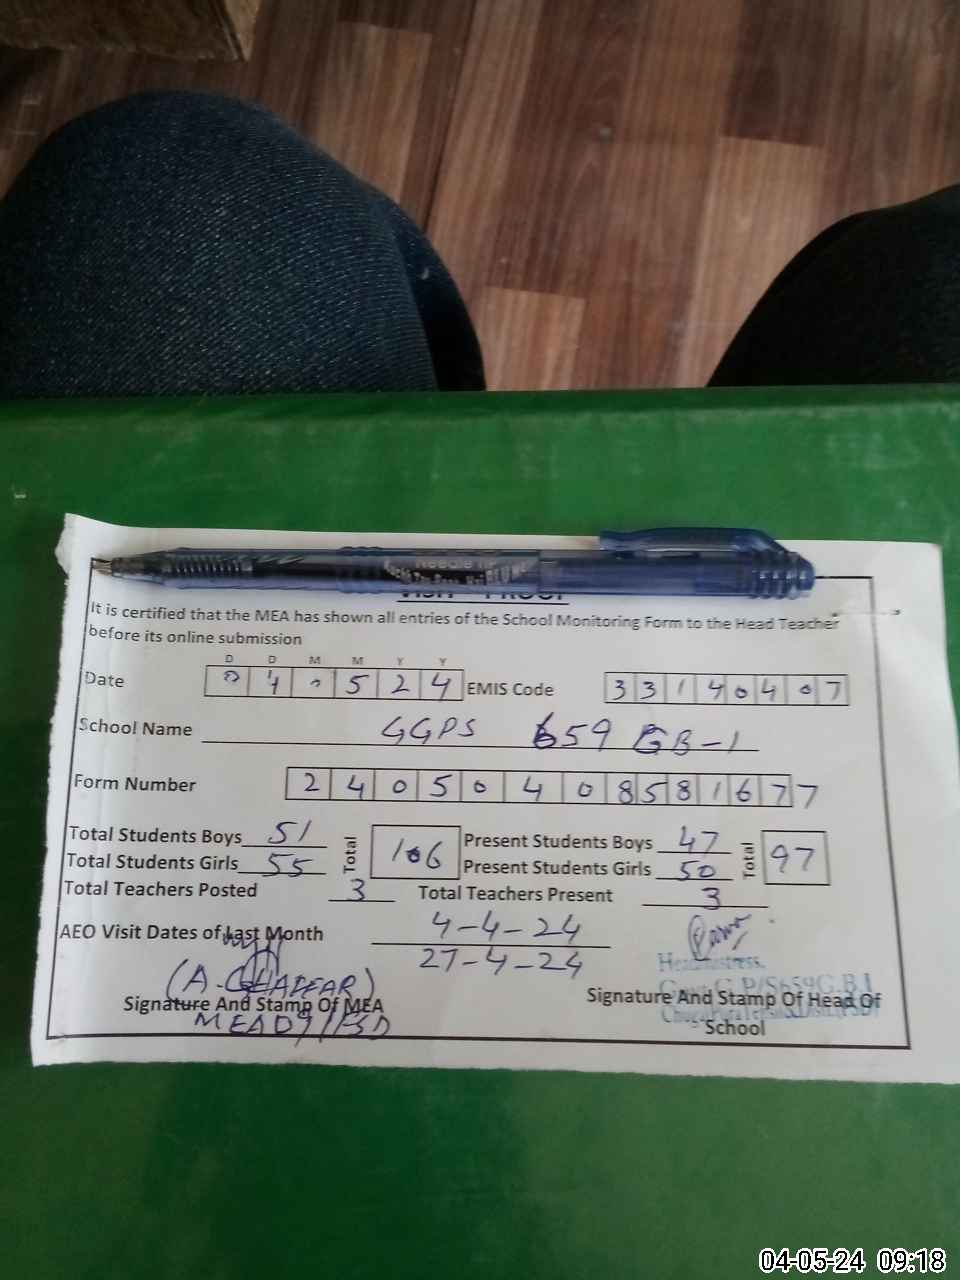 Needle
VISIT PROOF
It is certified that the MEA has shown all entries of the School Monitoring Form to the Head Teacher
before its online submission
D D M M Y Y
Date 0 4 0 5 2 4 EMIS Code 3 3 1 4 0 4 0 7
School Name GGPS 659 GB-1
Form Number 2 4 0 5 0 4 0 8 5 8 1 6 7 7
Total Students Boys 51 Total 106 Present Students Boys 47 Total 97
Total Students Girls 55 Present Students Girls 50
Total Teachers Posted 3 Total Teachers Present 3
AEO Visit Dates of Last Month 4-4-24
27-4-24
Headmistress,
(A. GHAFFAR)
G.P/S 659 G.B.I
Signature And Stamp Of MEA Signature And Stamp Of Head Of
School
MEA 09/FSD
04-05-24 09:18